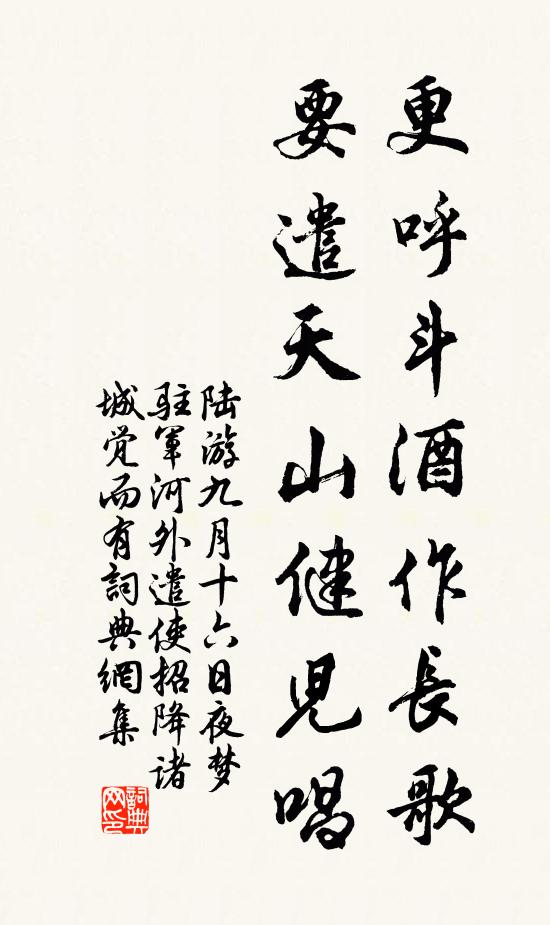 更呼斗酒作長歌
要遣天山健児唱
陆游九月十六日夜梦
駐軍河外遣使招降诸
城觉而有詞典網集
詞典
网印